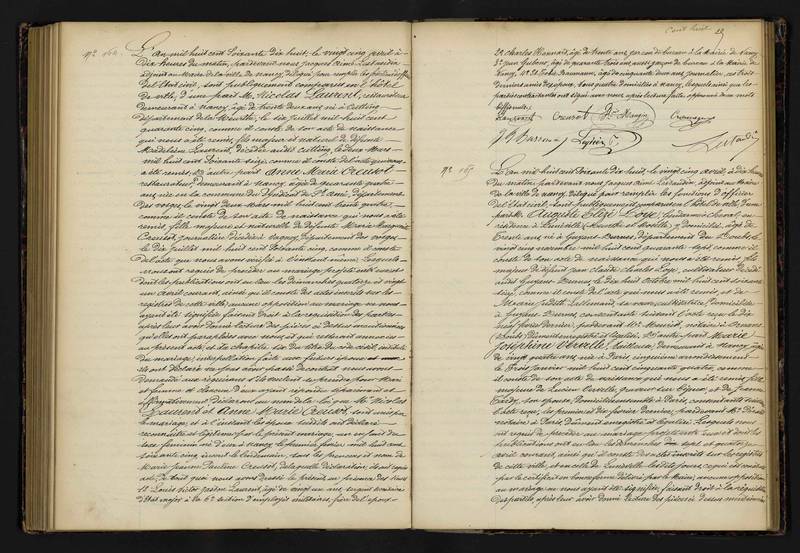 N° 164. L'an mil huit cent soixante dix huit, le vingt cinq avril à
dix heures du matin, pardevant nous Jacques
adjoint au Maire de la ville de Nancy, délégué pour remplir les fonctions d'officier
de l'état civil, sont publiquement comparus en l'hôtel
de ville, d'une part M. Nicolas Laurent,
demeurant à Nancy, âgé de trente deux ans, né à Cutting,
département de la Meurthe, le six juillet mil huit cent
quarante cinq, comme il conste de son acte de naissance
qui nous a été remis, fils majeur et naturel de défunte
Madeleine Laurent, décédée audit Cutting, le deux Mars
mil huit cent soixante seize, comme il conste de l'acte qui nous
a été remis; d'autre part Anne Marie Creusot
restaurateur, demeurant à Nancy, âgée de quarante quatre
ans, née en la commune du Syndicat de St. Amé, département
des Vosges, le vingt deux Mars mil huit cent trente quatre,
comme il conste de son acte de naissance qui nous a été
remis, fille majeure et naturelle de défunte Marie Marguerite
Creusot, journalière, décédée à Vagney, département des Vosges,
le dix juillet mil huit cent soixante cinq, comme il conste
de l'acte que nous avons vérifié à l'instant même. Lesquels
nous ont requis de procéder au mariage projeté entre eux et
dont les publications ont eu lieu les dimanches quatorze et vingt
un avril courant, ainsi qu'il conste des actes inscrits sur les
registres de cette ville; aucune opposition au mariage ne nous
ayant été signifiée, faisant droit à la réquisition des parties
après leur avoir donné lecture des pièces ci dessus mentionnées
qu'elles ont paraphées avec nous, et qui resteront annexées
au présent acte, et du chapitre six du titre du code civil, intitulé
du mariage; interpellation faite aux futurs époux,
ils ont déclaré ne pas avoir passé de contrat; nous avons
demandé aux requérants s'ils veulent se prendre pour Mari
et femme et chacun d'eux ayant répondu séparément et
affirmativement, déclarons au nom de la loi que M. Nicolas
Laurent et Anne Marie Creusot, sont unis par
le mariage, et à l'instant les époux susdits ont déclaré
reconnaître et légitimer par le présent mariage, un enfant du
sexe féminin, né d'eux à Nancy le premier février mil huit cent
soixante cinq, inscrit le lendemain, sous les prénoms et nom de
Marie Pauline Creusot, de laquelle déclaration, ils ont requis
acte. De tout quoi nous avons dressé le présent en présence des sieurs
1° Louis Victor Gaston Laurent, âgé de vingt un ans,
d'état major à la 6e section d'employés militaires, frère de l'époux
Cent huit
2° Charles Hannait, âgé de trente ans, garçon de bureau à la Mairie de Nancy,
3° Jean Gubens, âgé de quarante trois ans, aussi garçon de bureau à la Mairie de
Nancy, 4° Baumann, âgé de cinquante deux ans, journalier, les trois
derniers amis des époux, tous quatre domiciliés à Nancy, lesquels ainsi que les
parties contractantes ont signé avec nous, après lecture faite
Laurent Creusot
N° 165. L'an mil huit cent soixante dix huit, le vingt cinq avril, à dix heures
du matin, pardevant nous Jacques, adjoint au Maire
de la ville de Nancy, délégué pour remplir les fonctions d'officier
de l'état civil, sont publiquement comparus en l'hôtel de ville, d'une
part M. Auguste Elizé Loye, gendarme à cheval, en
résidence à Lunéville (Meurthe et Moselle), y domicilié, âgé de
trente ans, né à Guyans-Durnes, département du Doubs, le
vingt cinq novembre mil huit cent quarante sept, comme il
conste de son acte de naissance qui nous a été remis, fils
majeur de défunt Jean Claude Charles Loye, cultivateur, décédé
audit Guyans-Durnes, le dix huit octobre mil huit cent soixante
seize, comme il conste de l'acte qui nous a été remis, et de
Marie Lallemand, sa veuve, cultivatrice, domiciliée
à Guyans-Durnes, consentante suivant l'acte reçu le dix
neuf février dernier, pardevant Me Mourot, notaire à Ornans
(Doubs) dûment enregistré et légalisé. D'autre part Marie
Joséphine Cherelle, tailleuse, demeurant à Nancy, âgée
de vingt quatre ans, née à Paris, cinquième arrondissement
le trois janvier mil huit cent cinquante quatre, comme
il conste de son acte de naissance qui nous a été remis, fille
majeure de Lucien Cherelle, graveur
son épouse, domiciliés ensemble à Paris, consentants suivant
l'acte reçu, les premier et dix février dernier, pardevant Me
notaire à Paris, dûment enregistré. Lesquels nous
ont requis de procéder au mariage projeté entre eux et dont les
publications ont eu lieu les dimanches sept et quatorze
avril courant, ainsi qu'il conste des actes inscrits sur les registres
de cette ville, et en celle de Lunéville les dits jours, ce qui est constaté
par le certificat en bonne forme délivré par le Maire; aucune opposition
au mariage ne nous ayant été signifiée, faisant droit à la réquisition
des parties, après leur avoir donné lecture des pièces ci dessus mentionnées